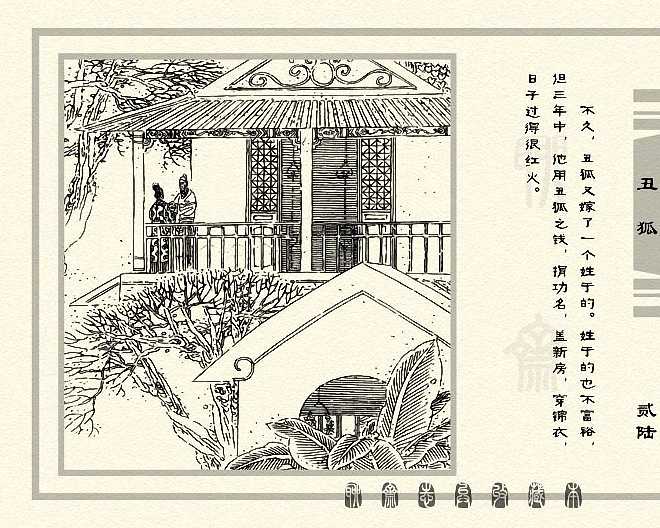 不久，丑狐又嫁了一个姓于的。姓于的也不富裕，
但三年中，他用丑狐之钱，捐功名，盖新房，穿锦衣，
日子过得很红火。
丑狐
贰陆
聊斋志异收藏本